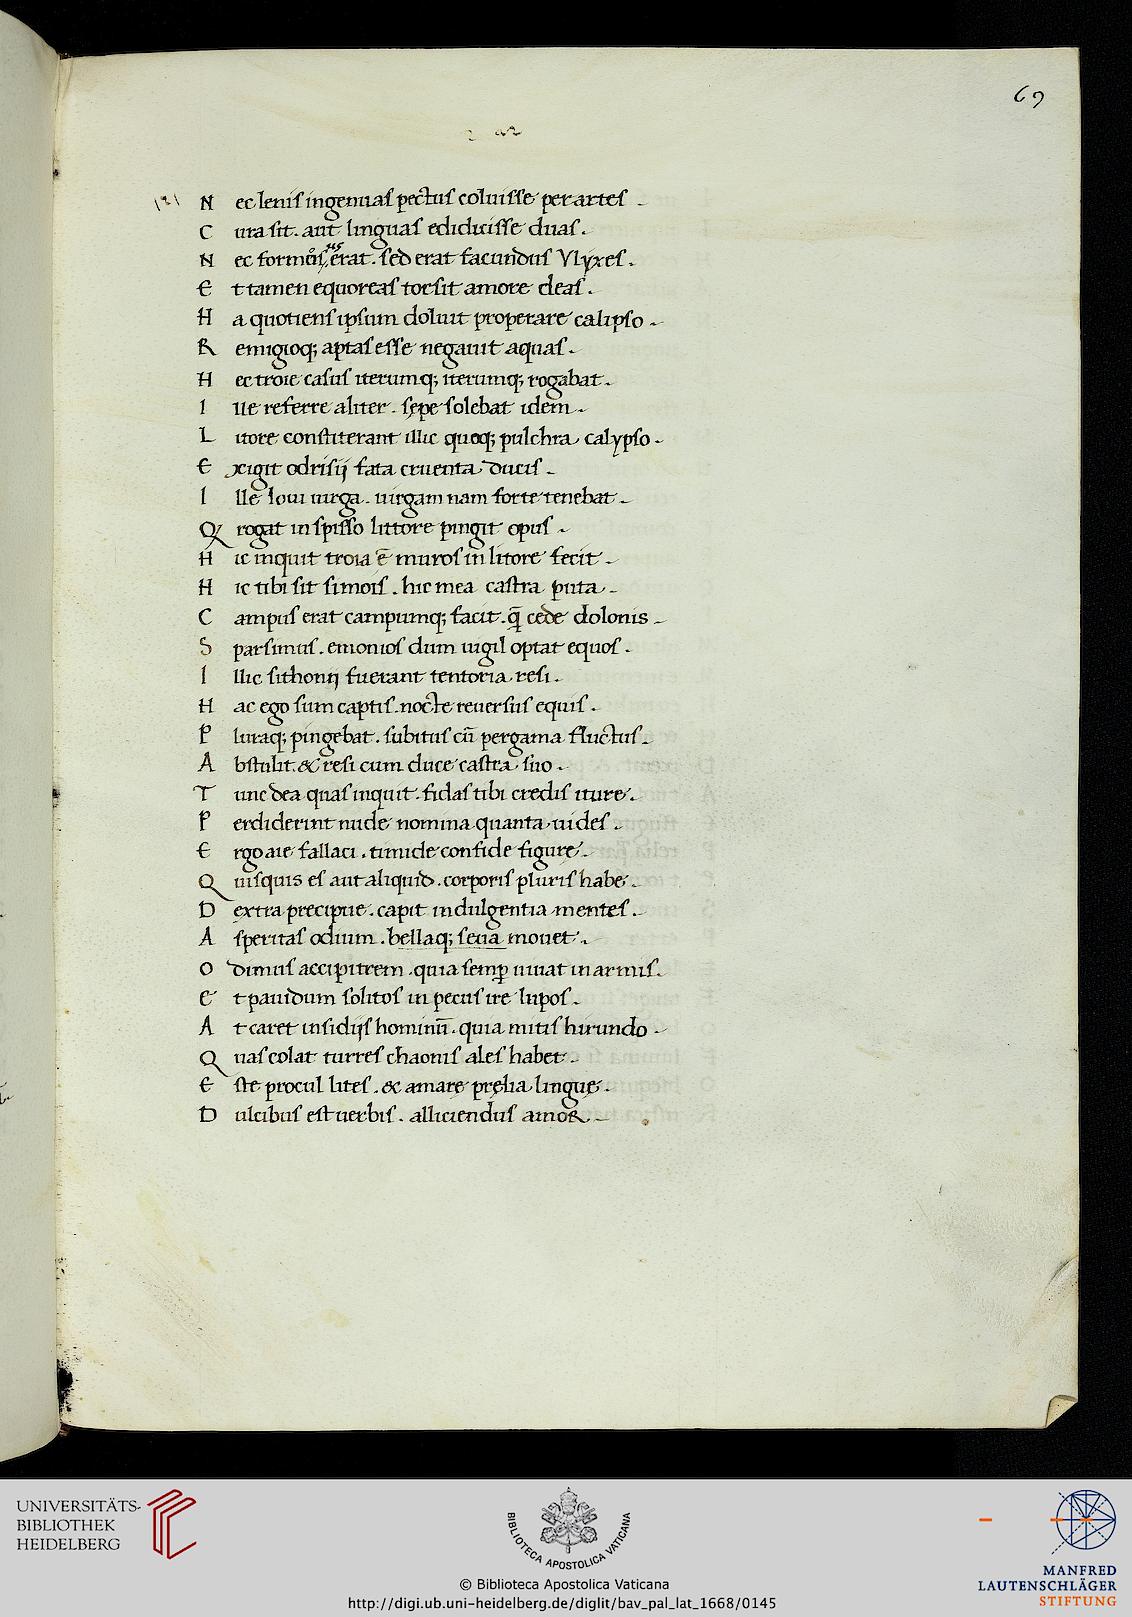 69
121
N ec lenis ingenuas pectus coluisse per artes
C ura sit. aut linguas edidicisse duas.
N ec formōsus erat. sed erat facundus Vlyxes.
E t tamen equoreas torsit amore deas.
H a quotiens ipsum doluit properare calipso
R emigioq; aptas esse negauit aquas.
H ec troie casus iterumq; iterumq; rogabat.
I lle referre aliter. sępe solebat idem.
L itore constiterant illic quoq; pulchra calypso
E xigit odrisij fata cruenta ducis.
I lle loui uirga. uirgam nam forte tenebat.
Q rogat in spisso littore pingit opus.
H ic inquit troia ē muros in litore fecit.
H ic tibi sit simois. hic mea castra puta.
C ampus erat campumq; facit. q̄ cede dolonis
S parsimus. emonios dum uigil optat equos.
I llic sithonij fuerant tentoria resi.
H ac ego sum captis. nocte reuersus equis.
P luraq; pingebat. subitus cū pergama fluctus.
A bstulit. & resi cum duce castra suo.
T unc dea quas inquit. fidas tibi credis iture.
P erdiderint nude nomina quanta uides.
E rgo aie fallaci. timide confide figurę.
Q uisquis es aut aliquid. corporis pluris habe.
D extra precipue. capit indulgentia mentes.
A speritas odium. bellaq; seua mouet.
O dimus accipitrem. quia semp̱ uiuat in armis.
E t pauidum solitos in pecus ire lupos.
A t caret insidijs hominū. quia mitis hirundo
Q uas colat turres chaonis ales habet.
E ste procul lites. & amarę pręlia linguę.
D ulcibus est uerbis. alliciendus amor
UNIVERSITÄTS-
BIBLIOTHEK
HEIDELBERG
BIBLIOTECA APOSTOLICA VATICANA
© Biblioteca Apostolica Vaticana
http://digi.ub.uni-heidelberg.de/diglit/bav_pal_lat_1668/0145
MANFRED
LAUTENSCHLÄGER
STIFTUNG